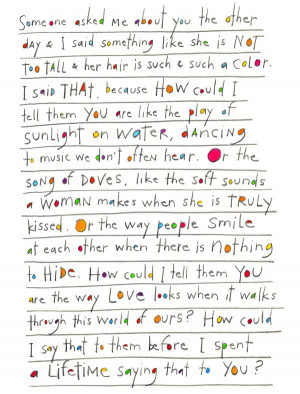 Someone asked me about you the other
day & I said something like she is NOT
TOO TALL & her hair is such & such a color.
I said THAT, because HOW could I
tell them YOU are like the play of
sunlight on water, dancing
to music we don't often hear. Or the
song of DOVES, like the soft sounds
a WOMAN makes when she is TRULY
kissed. Or the way people smile
at each other when there is nothing
to HIDE. How could I tell them YOU
are the way LOVE looks when it walks
through this world of ours? How could
I say that to them before I spent
a LIFETIME saying that to YOU?